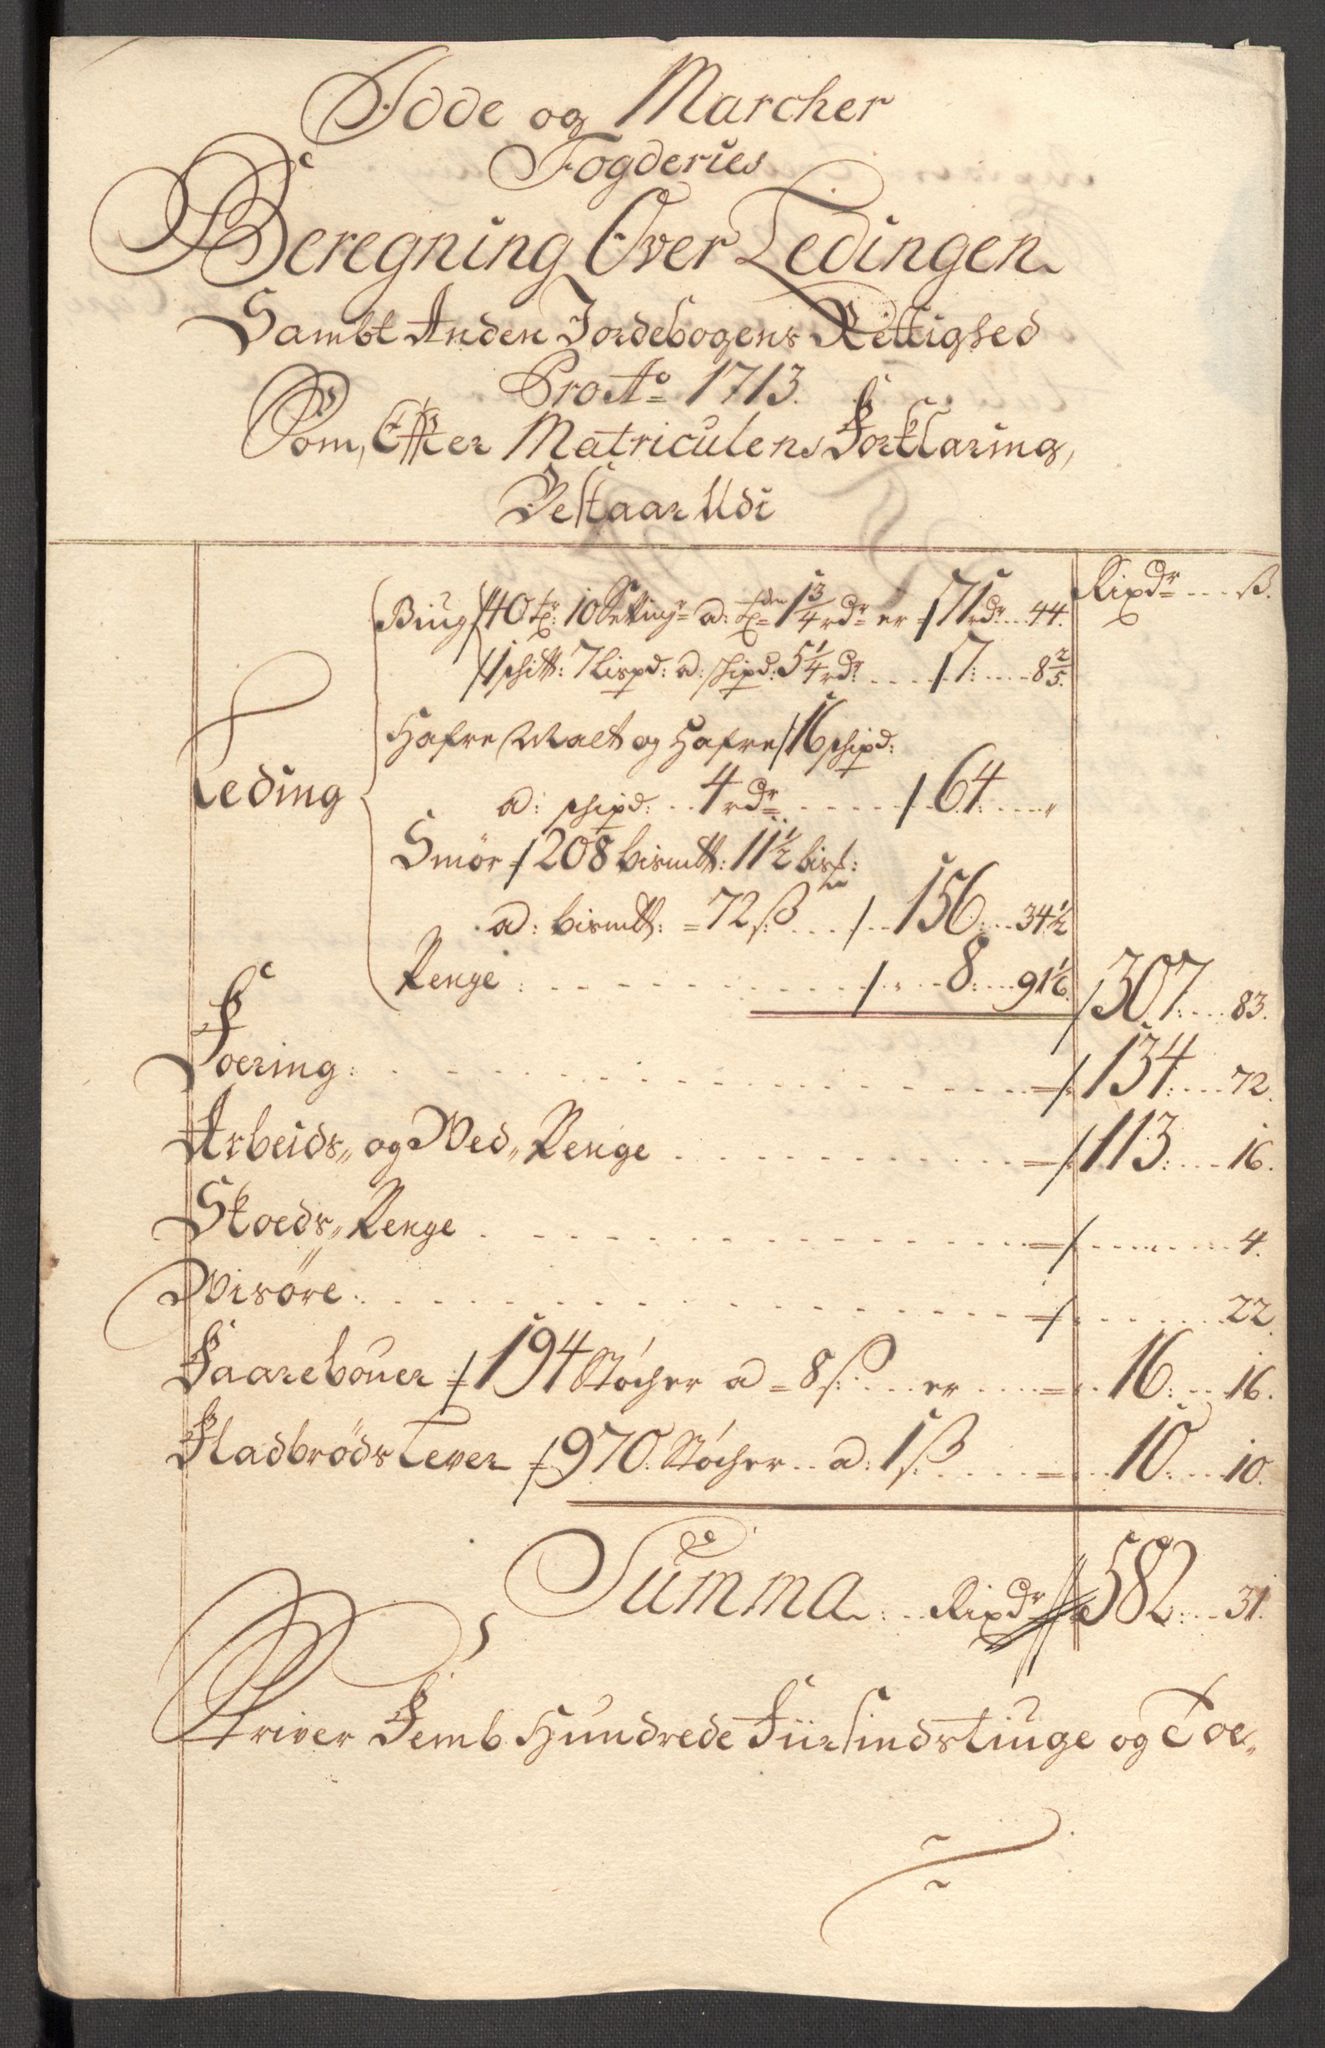 Idde og Marcher
Fogderies
Beregning Over Ledingen
Sambt Anden Jordebogens Rettighed
Pro Ao 1713.
Som, Effter Matriculens Forklaring,
Bestaar Udi
Rixdr ... ß.
Biug 40 tr: 10 Setting a: tden 1 3/4 rdr er 71 rdr .. 44.
1 sch℔: 7 Lispd: a: schipd: 5 1/4 rdr .... 7: ... 8 2/5.
Leding
Hafre Malt og Hafre 16 schipd:
a: schipd: .. 4 rdr ...... 64 ... „
Smör 208 bism℔: 11 1/2 bis
a: bism℔: = 72 ß ... 156: .. 34 1/2
Penge: .......... 8: ... 91 1/6. 307: ... 83.
Foering: .......... 134: ... 72.
Arbeids„ og Wed„ Penge .......... 113: ... 16.
Skoeds„ Penge .......... 4.
Wisöre: .......... 22.
Faarebouer 194 Støcher a = 8 ß: ... er ... 16: ... 16.
Fladbröds Lever 970: Støcher .. a: 1 ß .... 10: ... 10.
Summa: .. Rixdr 582: .. 31.
Skriver Femb Hundrede Fiirsindstiuge og Toe„